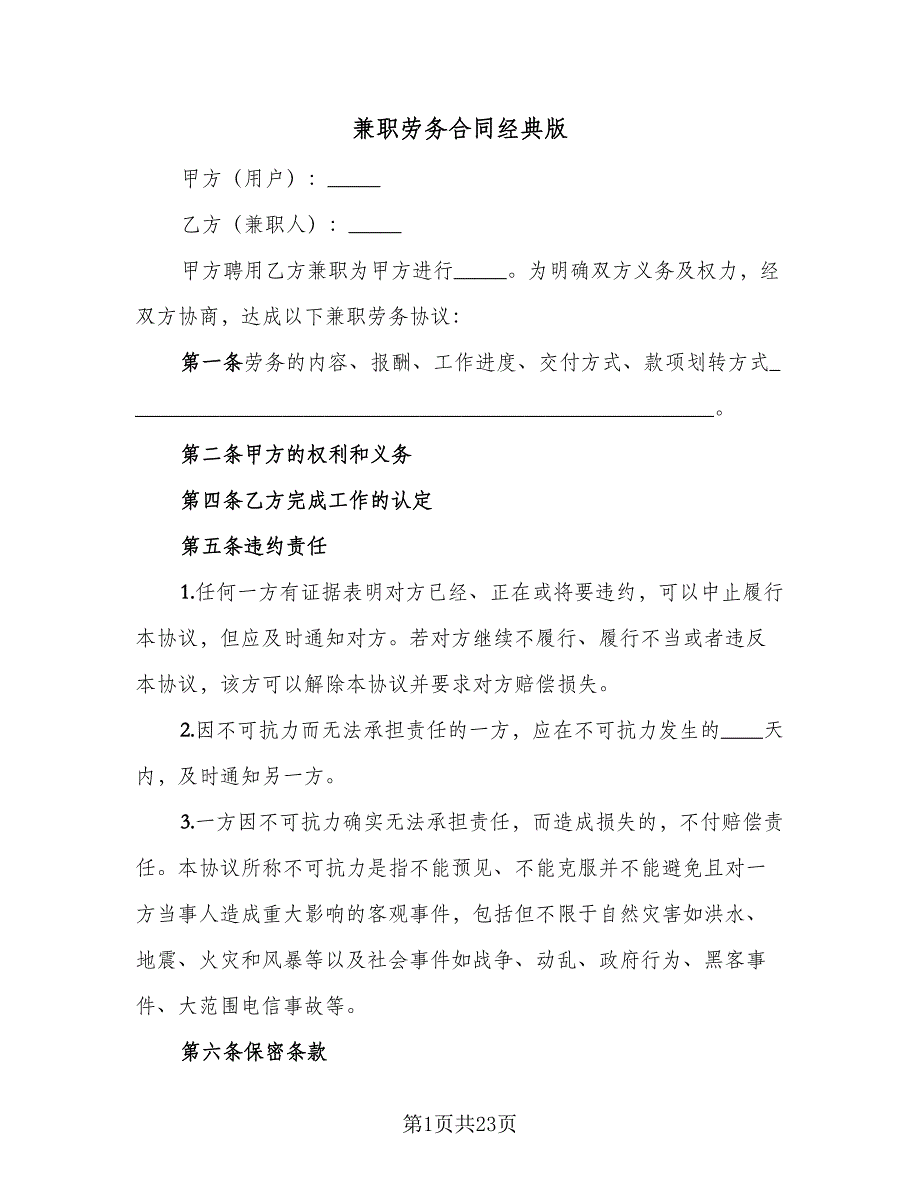 兼职劳务合同经典版
甲方（用户）：_____
乙方（兼职人）：_____
甲方聘用乙方兼职为甲方进行_____。为明确双方义务及权力，经
双方协商，达成以下兼职劳务协议：
第一条劳务的内容、报酬、工作进度、交付方式、款项划转方式_
_______________________________________________________。
第二条甲方的权利和义务
第四条乙方完成工作的认定
第五条违约责任
1.任何一方有证据表明对方已经、正在或将要违约，可以中止履行
本协议，但应及时通知对方。若对方继续不履行、履行不当或者违反
本协议，该方可以解除本协议并要求对方赔偿损失。
2.因不可抗力而无法承担责任的一方，应在不可抗力发生的____天
内，及时通知另一方。
3.一方因不可抗力确实无法承担责任，而造成损失的，不付赔偿责
任。本协议所称不可抗力是指不能预见、不能克服并不能避免且对一
方当事人造成重大影响的客观事件，包括但不限于自然灾害如洪水、
地震、火灾和风暴等以及社会事件如战争、动乱、政府行为、黑客事
件、大范围电信事故等。
第六条保密条款
第1页共23页